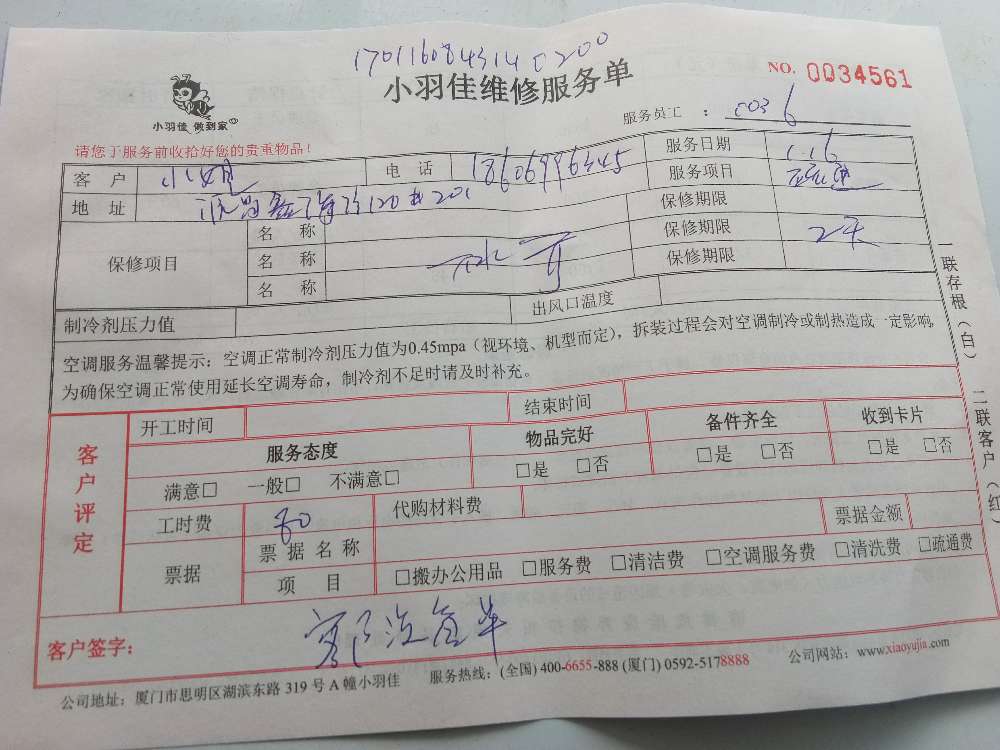 170116084314 0200
小羽佳维修服务单
NO. 0034561
小羽佳 做到家
服务员工 : 0036
请您于服务前收拾好您的贵重物品!
客 户 电 话 18606996345 服务日期 1.16
地 址 120 201 服务项目
保修项目 名 称 保修期限
名 称 水 保修期限 2天
名 称 保修期限
制冷剂压力值 出风口温度
空调服务温馨提示:空调正常制冷剂压力值为0.45mpa(视环境、机型而定),拆装过程会对空调制冷或制热造成一定影响,
为确保空调正常使用延长空调寿命,制冷剂不足时请及时补充。
一联存根(白) 二联客户(红)
客户评定
开工时间 结束时间
服务态度 物品完好 备件齐全 收到卡片
满意□ 一般□ 不满意□ □是 □否 □是 □否 □是 □否
工时费 代购材料费
票据 票据名称 票据金额
项 目 □搬办公用品 □服务费 □清洁费 □空调服务费 □清洗费 □疏通费
客户签字:
公司地址:厦门市思明区湖滨东路 319 号 A 幢小羽佳 服务热线:(全国) 400-6655-888 (厦门) 0592-5178888 公司网站:www.xiaoyujia.com